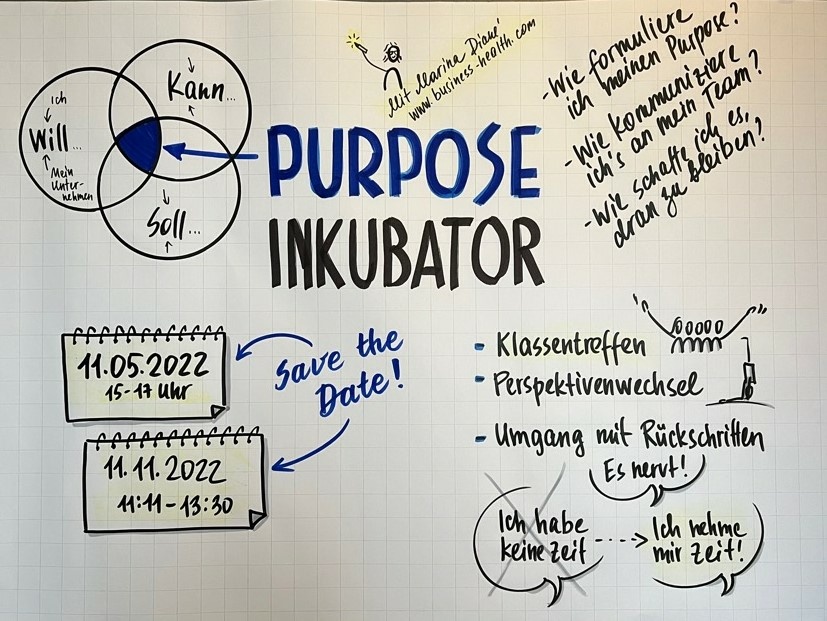 Ich
Will...
Mein
Unter-
nehmen
Kann...
Soll...
Mit Marina Diané
www.business-health.com
PURPOSE
INKUBATOR
-Wie formuliere
ich meinen Purpose?
-Wie kommuniziere
ich's an mein Team?
-Wie schaffe ich es,
dran zu bleiben?
11.05.2022
15-17 Uhr
Save the
Date!
11.11.2022
11:11-13:30
- Klassentreffen
- Perspektivenwechsel
- Umgang mit Rückschritten
Es nervt!
Ich habe
keine Zeit
Ich nehme
mir Zeit!